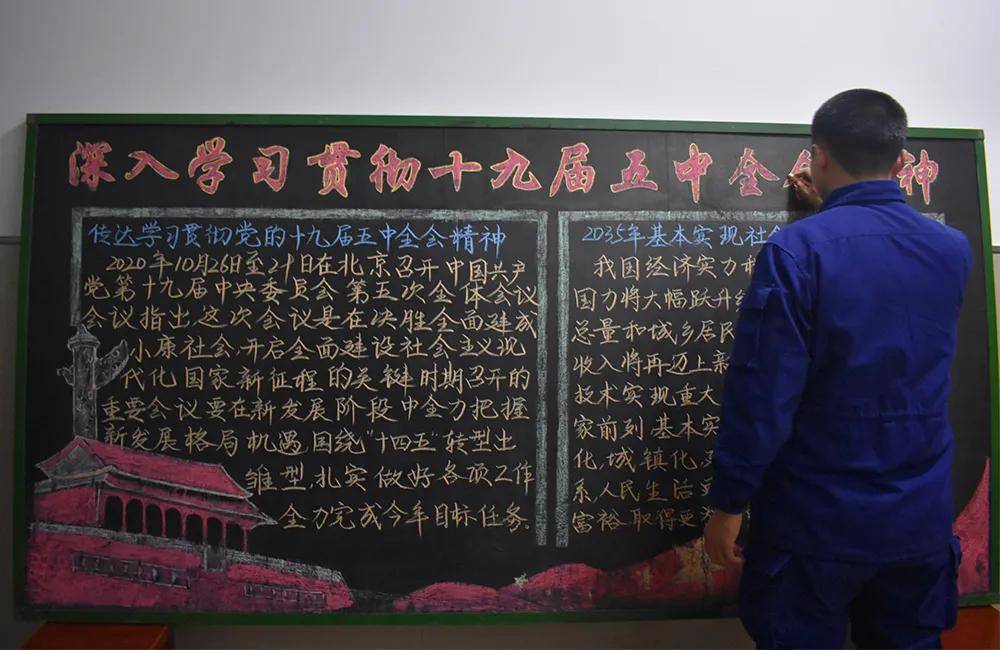 深入学习贯彻十九届五中全 神
传达学习贯彻党的十九届五中全会精神
2020年10月26日至29日在北京召开中国共产
党第十九届中央委员会第五次全体会议
会议指出,这次会议是在决胜全面建成
小康社会,开启全面建设社会主义现
代化国家新征程的关键时期召开的
重要会议要在新发展阶段中全力把握
新发展格局机遇围绕"十四五"转型出
雏型,扎实做好各项工作
全力完成今年目标任务.
2035年基本实现社
我国经济实力
国力将大幅跃升
总量和城乡居民
收入将再迈上新
技术实现重大
家前列基本实
化,城镇化
系,人民生活
富裕取得更